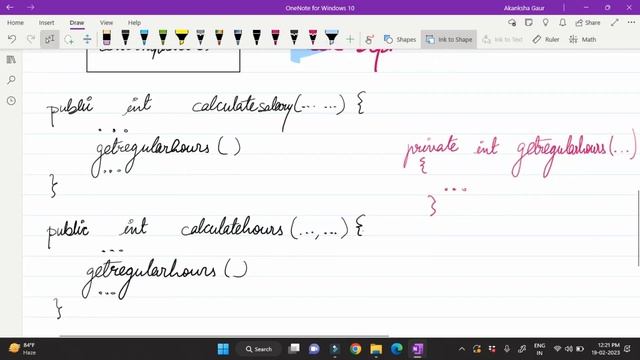 OneNote for Windows 10
Akanksha Gaur
Home Insert Draw View Help
Shapes Ink to Shape Ruler Math
public int calculatesalary(... ...) {
...
getregularhours ( )
...
}
private int getregularhours(...)
{
...
}
public int calculatehours (..., ...) {
...
getregularhours ( )
...
}
84°F
Haze
Search
ENG
IN
12:21 PM
19-02-2023